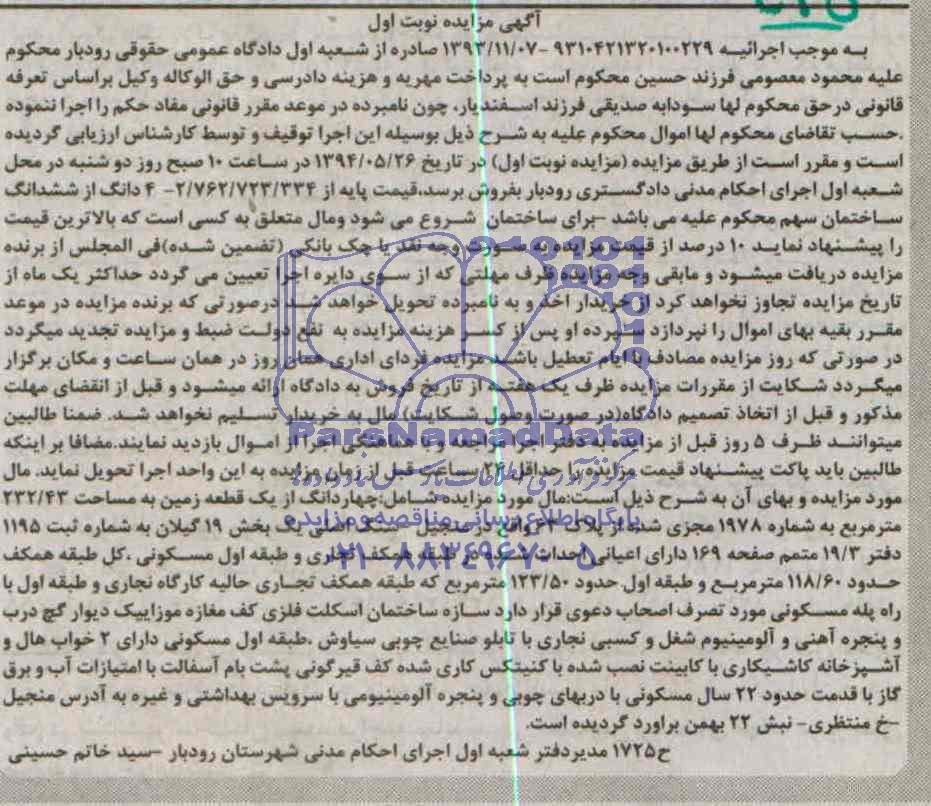 آگهی مزایده نوبت اول
به موجب اجرائیه ۹۳۱۰۴۲۱۳۲۰۱۰۰۲۲۹ -۱۳۹۳/۱۱/۰۷ صادره از شعبه اول دادگاه عمومی حقوقی رودبار محکوم
علیه محمود معصومی فرزند حسین محکوم است به پرداخت مهریه و هزینه دادرسی و حق الوکاله وکیل براساس تعرفه
قانونی درحق محکوم لها سودابه صدیقی فرزند اسفندیار، چون نامبرده در موعد مقرر قانونی مفاد حکم را اجرا ننموده
.حسب تقاضای محکوم لها اموال محکوم علیه به شرح ذیل بوسیله این اجرا توقیف و توسط کارشناس ارزیابی گردیده
است و مقرر است از طریق مزایده (مزایده نوبت اول) در تاریخ ۱۳۹۴/۰۵/۲۶ در ساعت ۱۰ صبح روز دو شنبه در محل
شعبه اول اجرای احکام مدنی دادگستری رودبار بفروش برسد،قیمت پایه از ۲/۷۶۲/۷۲۳/۳۳۴- ۴ دانگ از ششدانگ
ساختمان سهم محکوم علیه می باشد –برای ساختمان شروع می شود ومال متعلق به کسی است که بالاترین قیمت
را پیشنهاد نماید ۱۰ درصد از قیمت مزایده به صورت وجه نقد یا چک بانکی (تضمین شده)فی المجلس از برنده
مزایده دریافت میشود و مابقی وجه مزایده ظرف مهلتی که از سوی دایره اجرا تعیین می گردد حداکثر یک ماه از
تاریخ مزایده تجاوز نخواهد کرد از خریدار اخذ و به نامبرده تحویل خواهد شد درصورتی که برنده مزایده در موعد
مقرر بقیه بهای اموال را نپردازد سپرده او پس از کسر هزینه مزایده به نفع دولت ضبط و مزایده تجدید میگردد
در صورتی که روز مزایده مصادف با ایام تعطیل باشد مزایده فردای اداری همان روز در همان ساعت و مکان برگزار
میگردد شکایت از مقررات مزایده ظرف یک هفته از تاریخ فروش به دادگاه ارائه میشود و قبل از انقضای مهلت
مذکور و قبل از اتخاذ تصمیم دادگاه(در صورت وصول شکایت) مال به خریدار تسلیم نخواهد شد. ضمنا طالبین
میتوانند ظرف ۵ روز قبل از مزایده به دفتر اجرا مراجعه و با هماهنگی اجرا از اموال بازدید نمایند.مضافا بر اینکه
طالبین باید پاکت پیشنهاد قیمت مزایده را حداقل ۲۴ ساعت قبل از زمان مزایده به این واحد اجرا تحویل نماید. مال
مورد مزایده و بهای آن به شرح ذیل است:مال مورد مزایده شامل:چهاردانگ از یک قطعه زمین به مساحت ۲۳۲/۴۳
مترمربع به شماره ۱۹۷۸ مجزی شده از پلاک ۶۳ واقع در منجیل سنگ اصلی یک بخش ۱۹ گیلان به شماره ثبت ۱۱۹۵
دفتر ۱۹/۳ متمم صفحه ۱۶۹ دارای اعیانی احداث شده در طبقه همکف تجاری و طبقه اول مسکونی .کل طبقه همکف
حدود ۱۱۸/۶۰ مترمربع و طبقه اول حدود ۱۲۳/۵۰ مترمربع که طبقه همکف تجاری حالیه کارگاه نجاری و طبقه اول با
راه پله مسکونی مورد تصرف اصحاب دعوی قرار دارد سازه ساختمان اسکلت فلزی کف مغازه موزاییک دیوار گچ درب
و پنجره آهنی و آلومینیوم شغل و کسبی نجاری با تابلو صنایع چوبی سیاوش .طبقه اول مسکونی دارای ۲ خواب هال و
آشپزخانه کاشیکاری با کابینت نصب شده با کنیتکس کاری شده کف قیرگونی پشت بام آسفالت با امتیازات آب و برق
گاز با قدمت حدود ۲۲ سال مسکونی با دربهای چوبی و پنجره آلومینیومی با سرویس بهداشتی و غیره به آدرس منجیل
–خ منتظری- نبش ۲۲ بهمن براورد گردیده است.
ح۱۷۲۵ مدیردفتر شعبه اول اجرای احکام مدنی شهرستان رودبار –سید خاتم حسینی
ParsNamadData
پایگاه اطلاع رسانی مناقصه و مزایده
۰۲۱-۸۸۳۴۹۶۷۰-۵